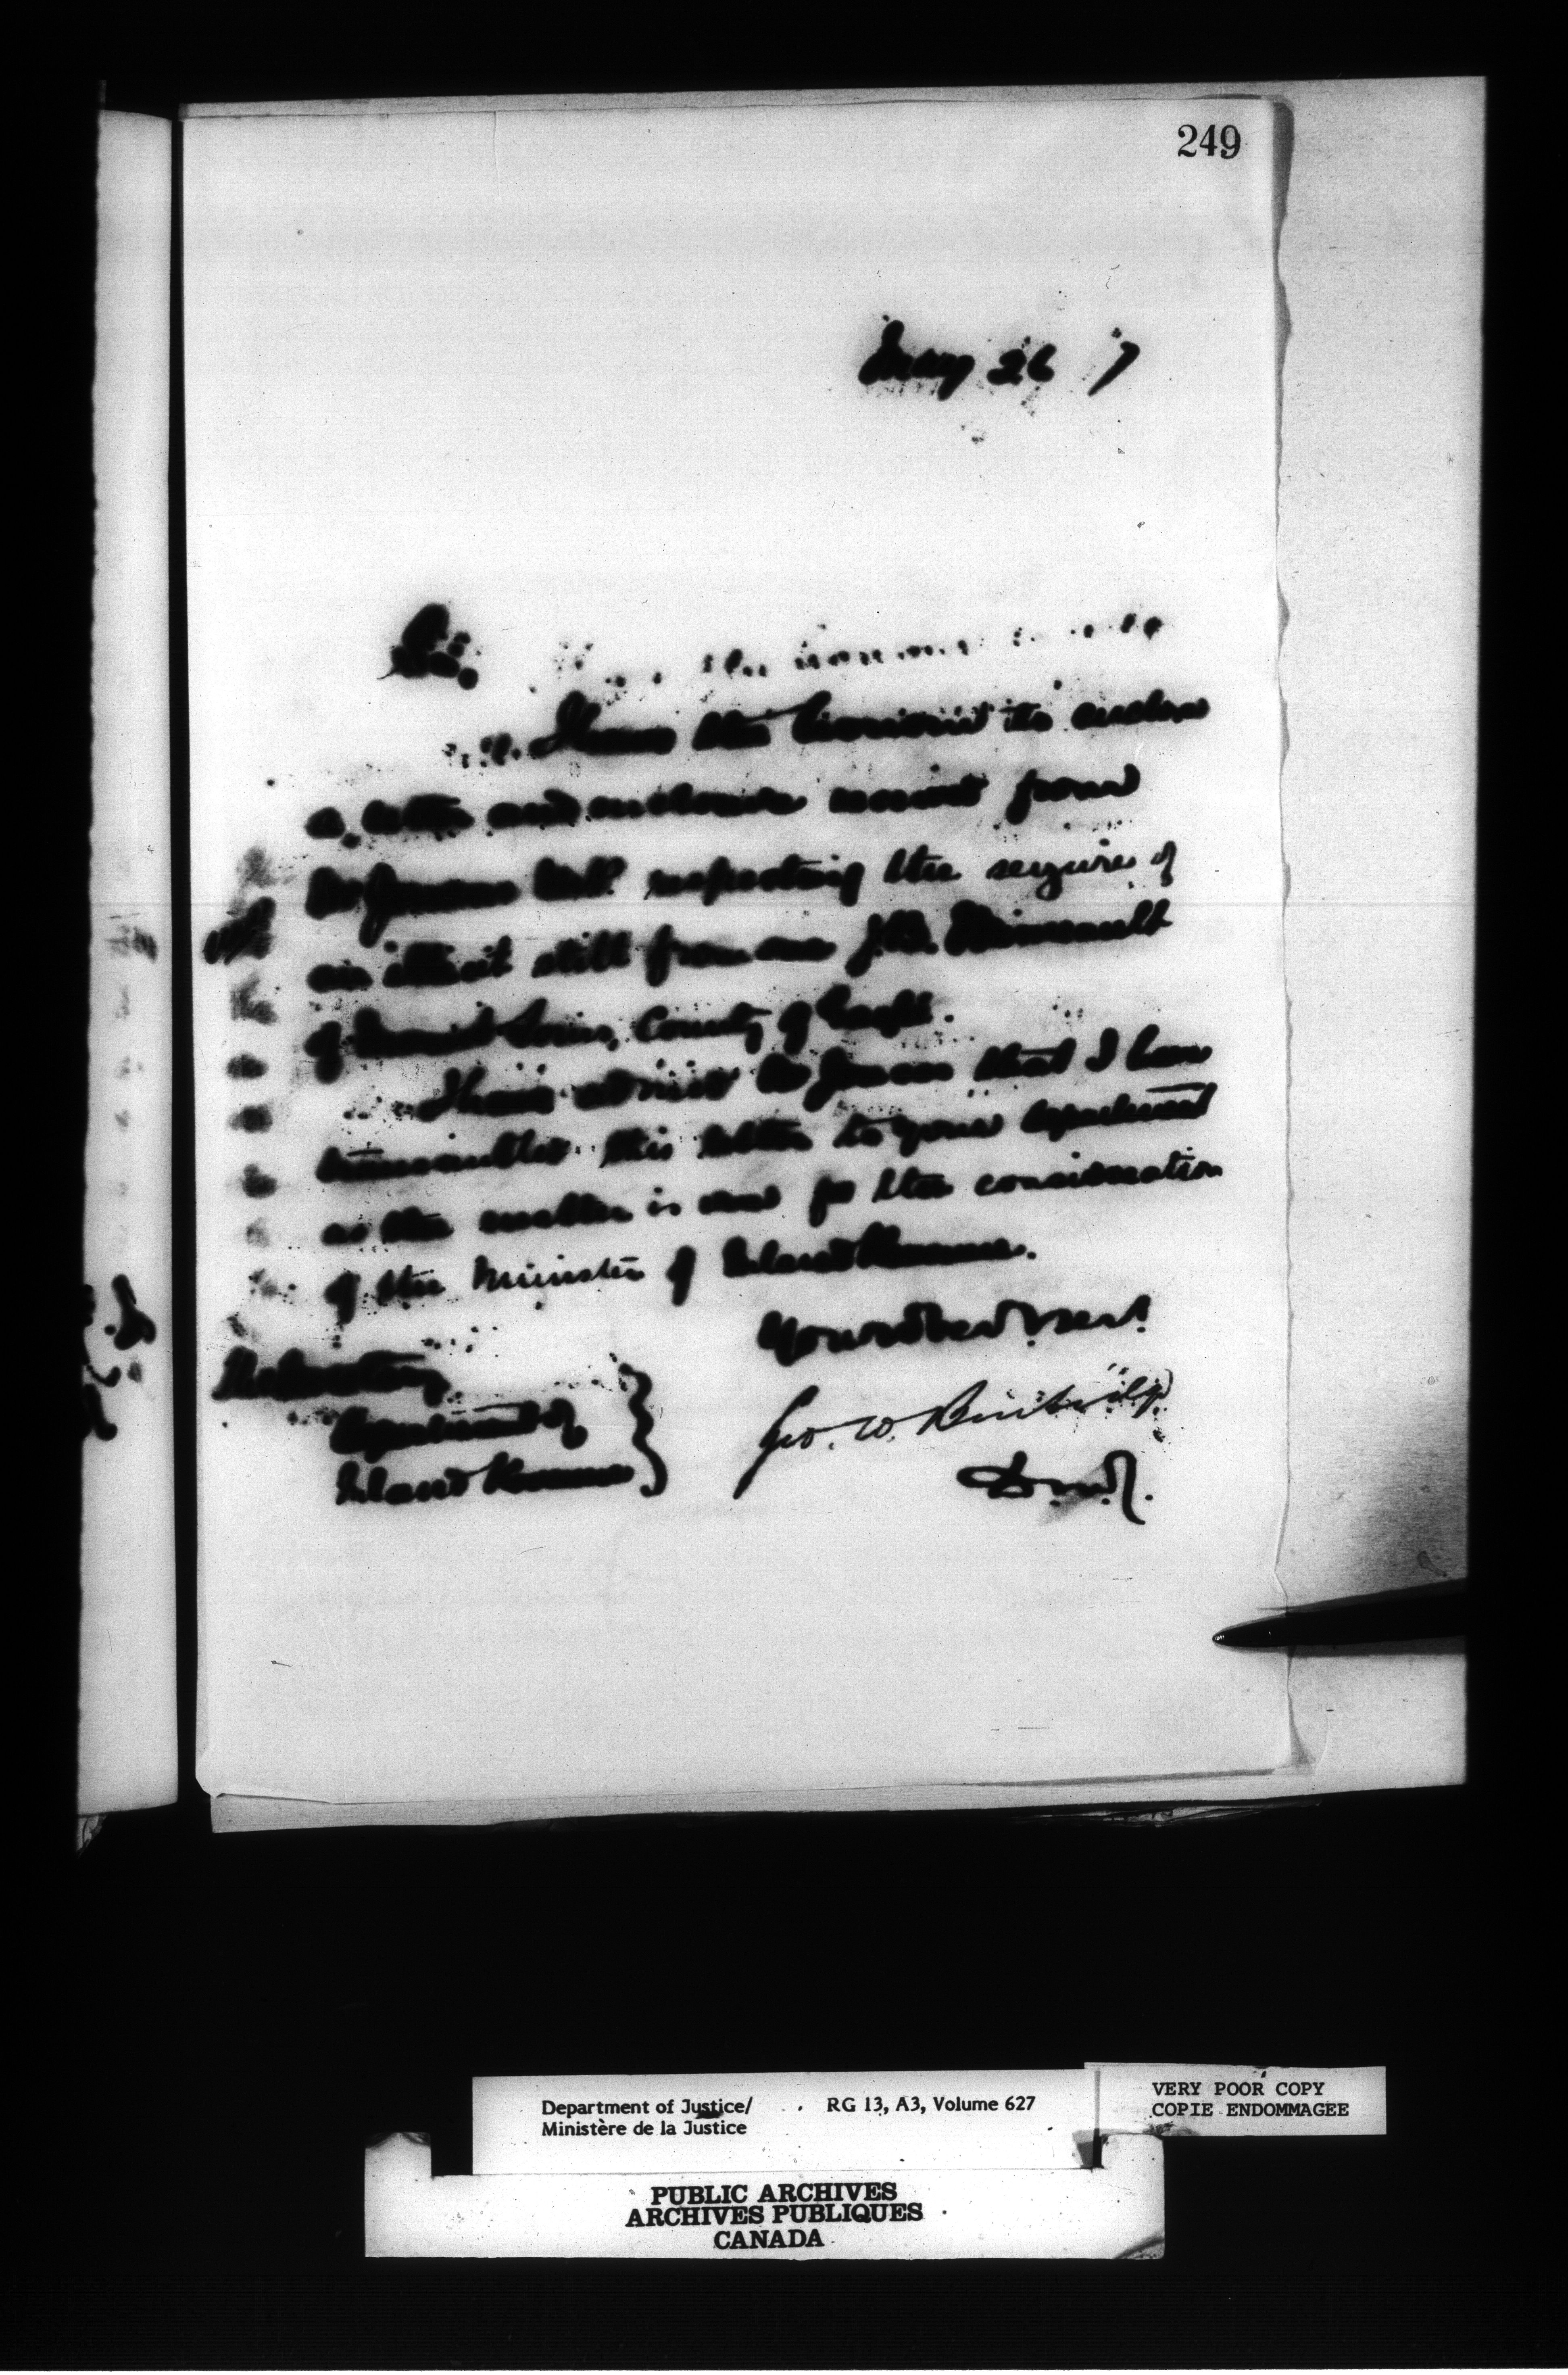 249
May 26 7
Sir,
I have the honour to enclose
a letter and enclosure received from
respecting the seizure of
an illicit still from one J.B.
of County of
I have advised that I have
transmitted this letter to your department
as the matter is one for the consideration
of the Minister of Inland Revenue.
Your obed. servt.
Geo. W. Burbidge
D.M.J.
The Secretary
Department of
Inland Revenue
Department of Justice/ RG 13, A3, Volume 627
Ministère de la Justice
VERY POOR COPY
COPIE ENDOMMAGEE
PUBLIC ARCHIVES
ARCHIVES PUBLIQUES
CANADA